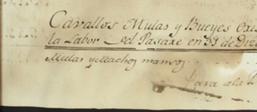 Cavallos Mulas y Bueyes
la Labor del Pasaxe en 33 de
Mulas y Machos mansos
para